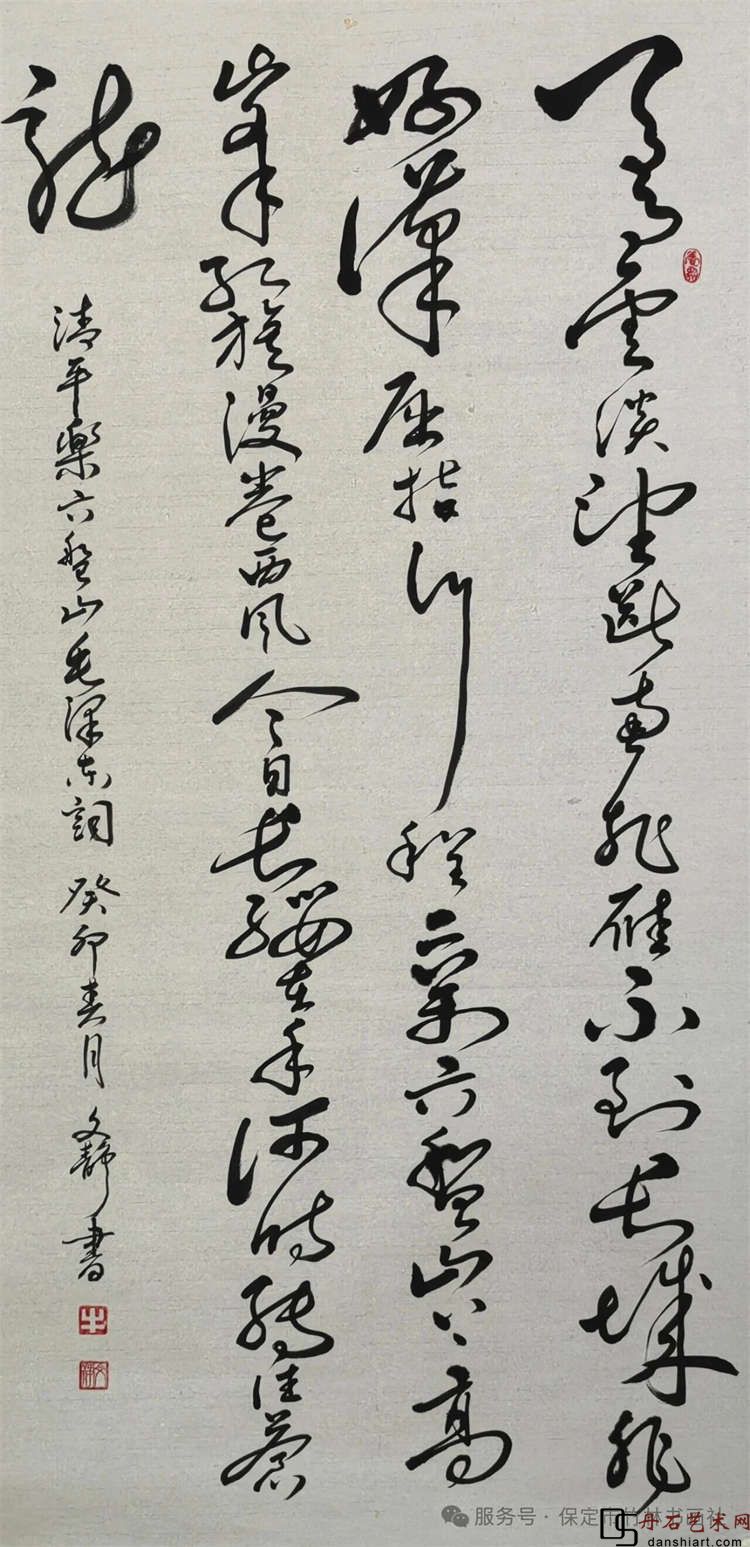 天高雲淡望斷南飛雁不到長城非
好漢屈指行程二萬六盤山上高
峯紅旗漫卷西風今日長纓在手何時縛住蒼
龍
清平樂六盤山毛澤東詞癸卯春月文靜書
牛
服务号·保定市竹林书画社
丹石艺术网
danshiart.com